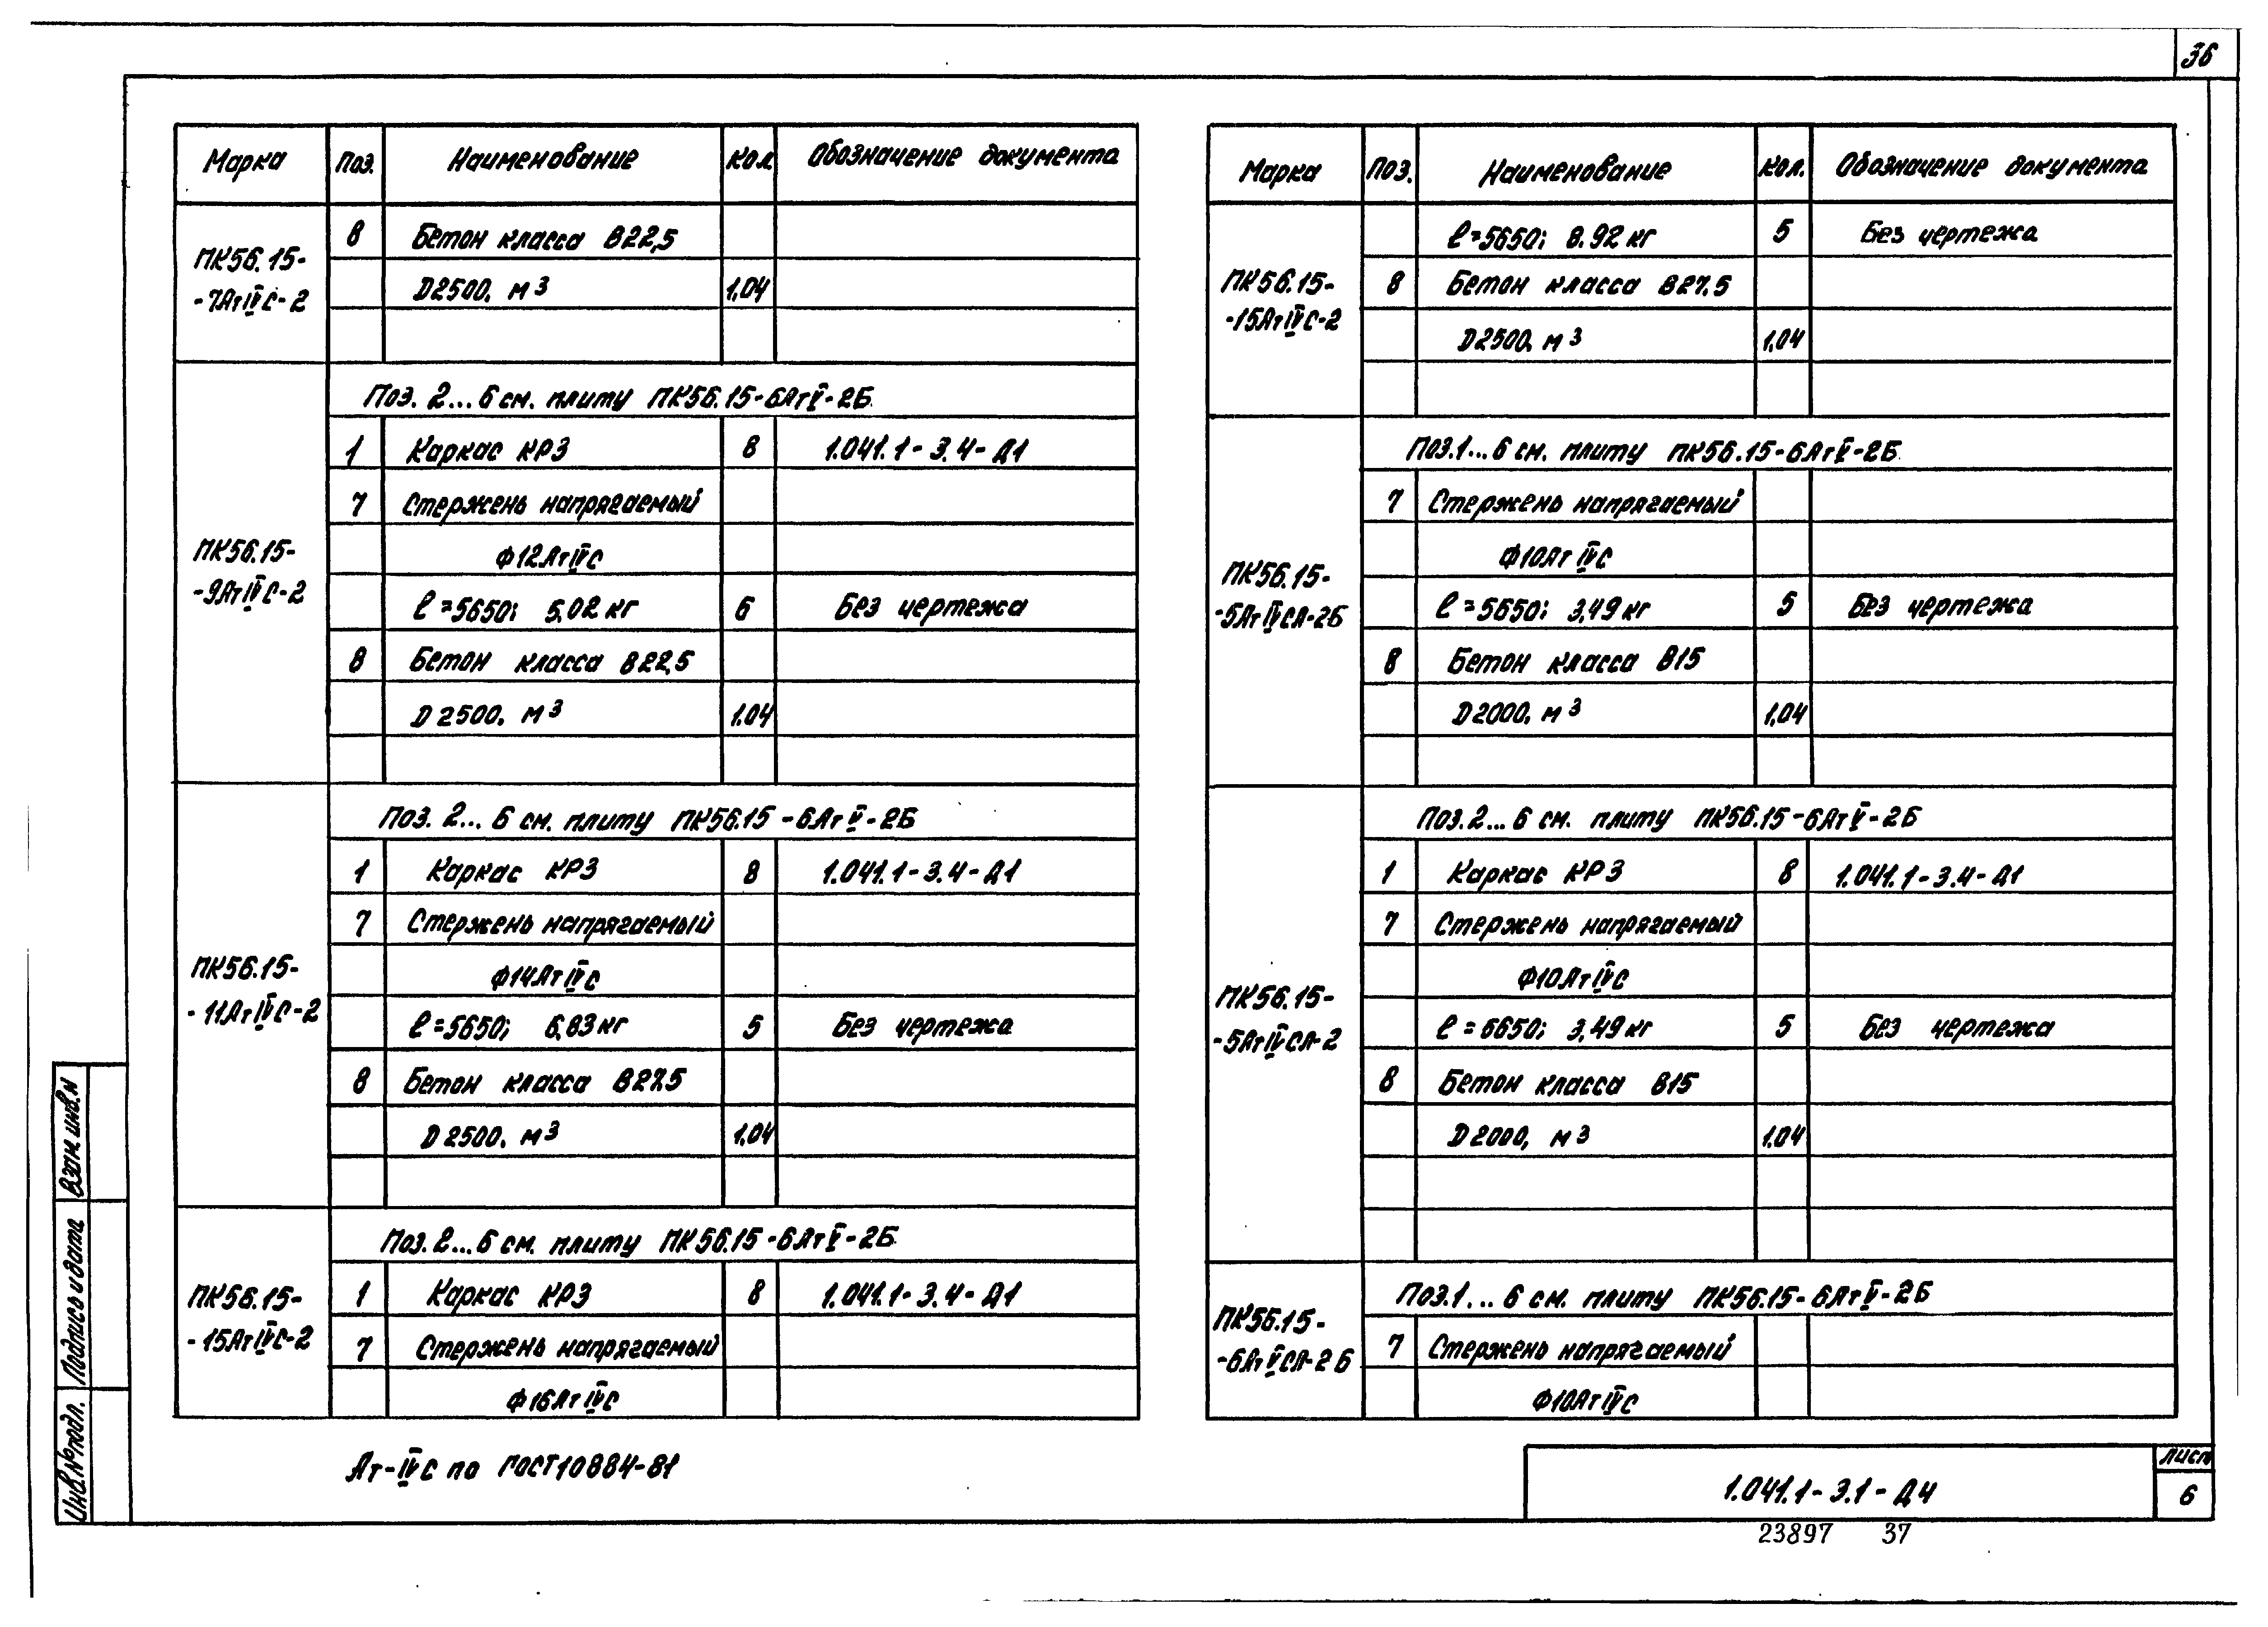 36
Марка Поз. Наименование Кол. Обозначение документа
ПК56.15-
-7АтIVС-2
8 Бетон класса В22,5
D2500, м3 1,04
Поз. 2...6 см. плиту ПК56.15-6АтV-2Б
ПК56.15-
-9АтIVС-2
1 Каркас КР3 8 1.041.1-3.4-Д1
7 Стержень напрягаемый
Ф12АтIVС
ℓ=5650; 5,02 кг 6 Без чертежа
8 Бетон класса В22,5
D2500, м3 1,04
Поз. 2... 6 см. плиту ПК56.15-6АтV-2Б
ПК56.15-
-11АтIVС-2
1 Каркас КР3 8 1.041.1-3.4-Д1
7 Стержень напрягаемый
Ф14АтIVС
ℓ=5650; 6,83 кг 5 Без чертежа
8 Бетон класса В27,5
D2500, м3 1,04
Поз. 2...6 см. плиту ПК56.15-6АтV-2Б
ПК56.15-
-15АтIVС-2
1 Каркас КР3 8 1.041.1-3.4-Д1
7 Стержень напрягаемый
Ф16АтIVС
Марка Поз. Наименование Кол. Обозначение документа
ПК56.15-
-15АтIVС-2
ℓ=5650; 8.92 кг 5 Без чертежа
8 Бетон класса В27,5
D2500, м3 1,04
Поз.1...6 см. плиту ПК56.15-6АтV-2Б
ПК56.15-
-5АтIVСЛ-2Б
7 Стержень напрягаемый
Ф10АтIVС
ℓ=5650; 3,49 кг 5 Без чертежа
8 Бетон класса В15
D2000, м3 1,04
Поз.2...6 см. плиту ПК56.15-6АтV-2Б
ПК56.15-
-5АтIVСЛ-2
1 Каркас КР3 8 1.041.1-3.4-Д1
7 Стержень напрягаемый
Ф10АтIVС
ℓ=5650; 3,49 кг 5 Без чертежа
8 Бетон класса В15
D2000, м3 1,04
Поз.1...6 см. плиту ПК56.15-6АтV-2Б
ПК56.15-
-6АтVСЛ-2Б
7 Стержень напрягаемый
Ф10АтIVС
Ат-IVС по ГОСТ10884-81
Взам. инв.№
Подпись и дата
Инв.№ подл.
1.041.1-3.1-Д4
Лист
6
23897 37